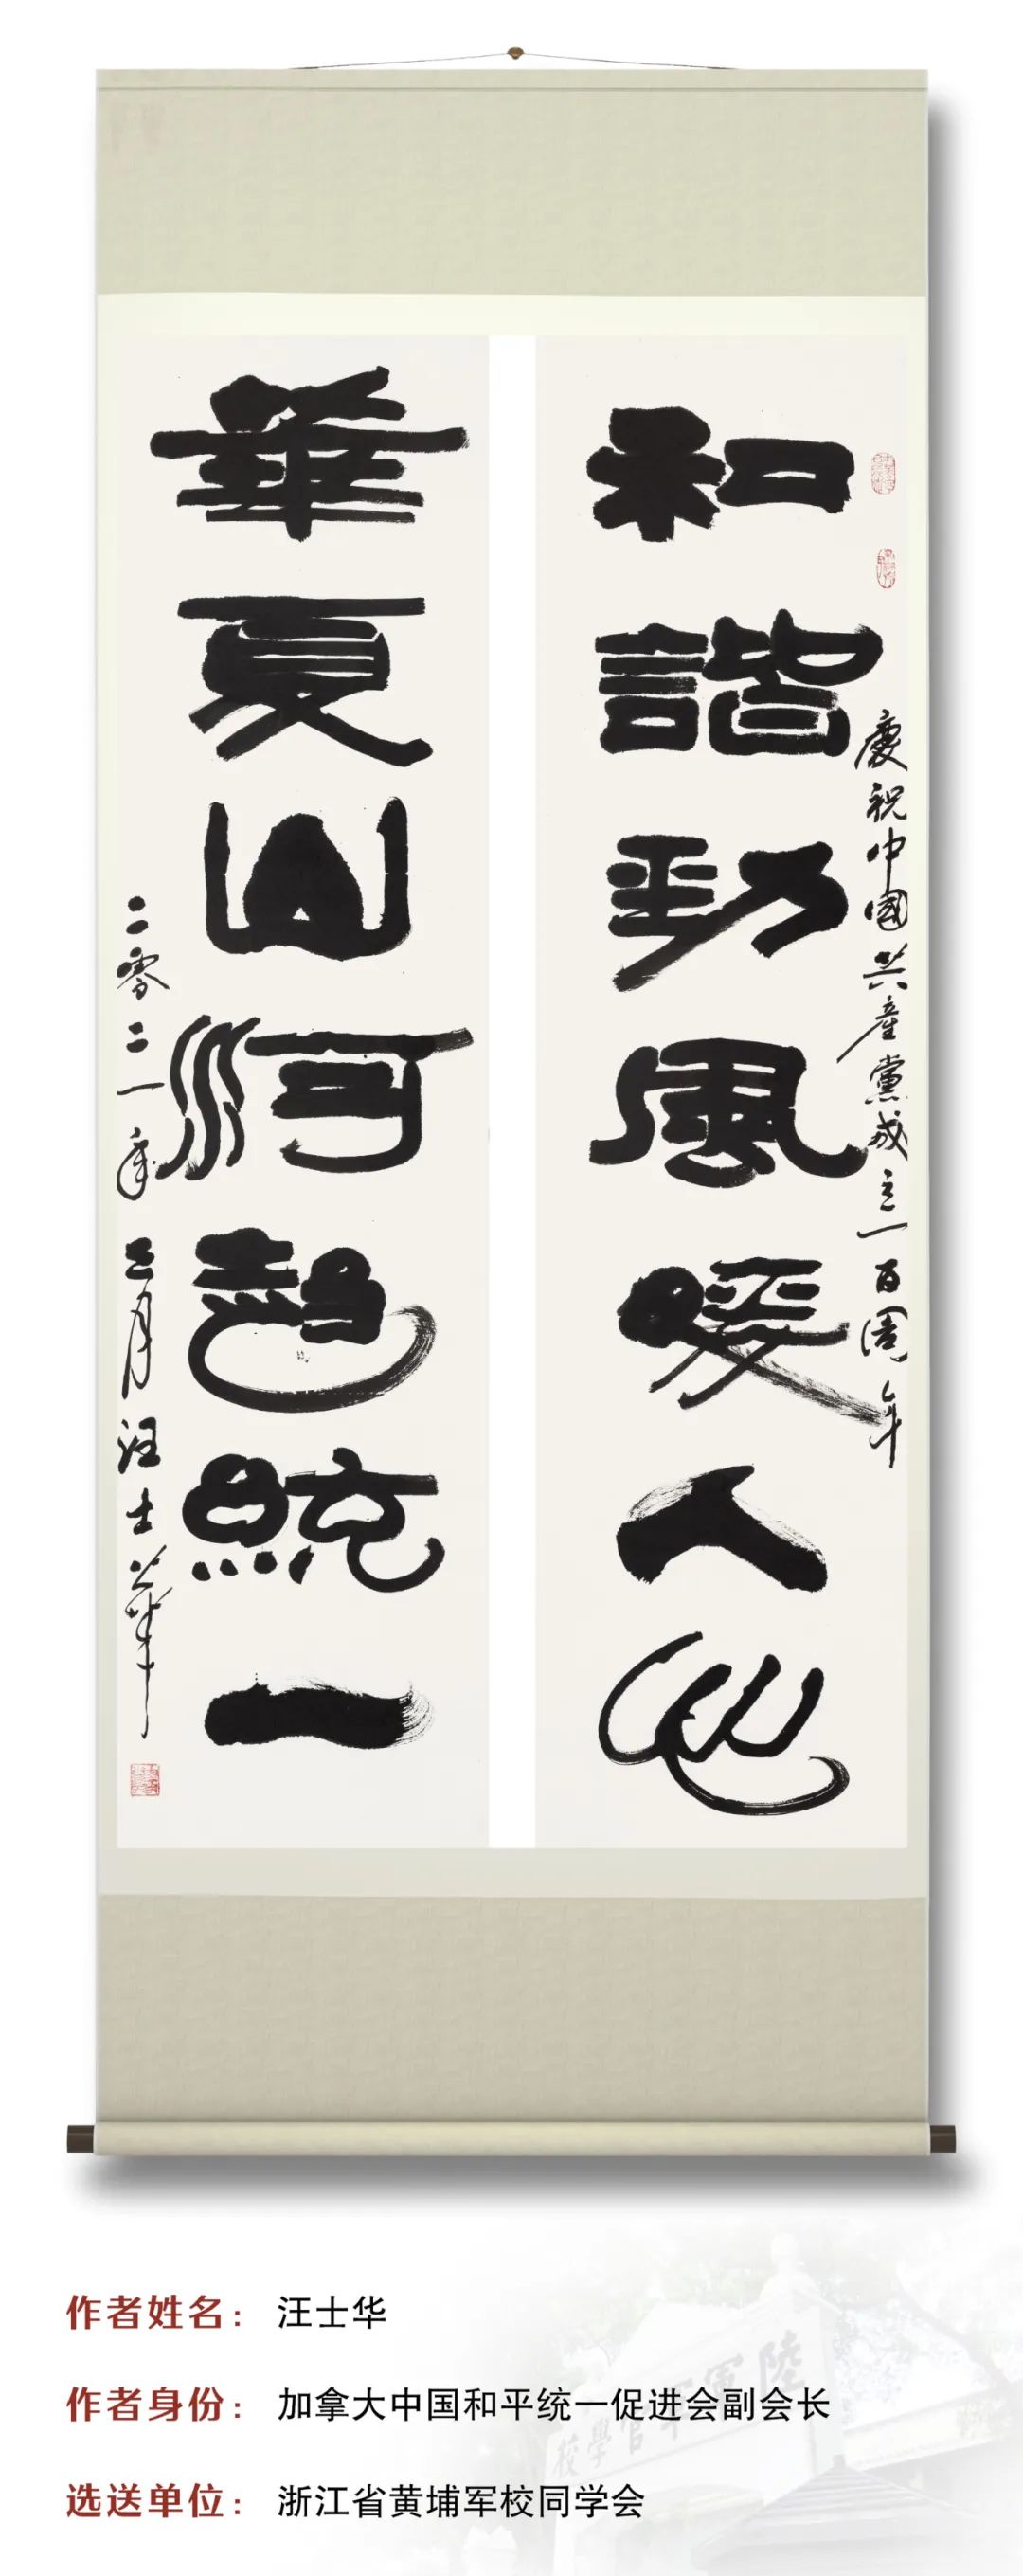 慶祝中國共產黨成立一百周年
和諧勁風暖人心
華夏山河趨統一
二零二一年三月汪士華
作者姓名： 汪士华
作者身份： 加拿大中国和平统一促进会副会长
选送单位： 浙江省黄埔军校同学会
陸軍軍官學校